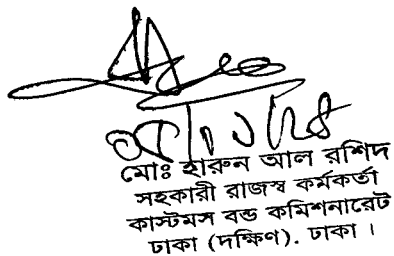 মোঃ হারুন আল রশিদ
সহকারী রাজস্ব কর্মকর্তা
কাস্টমস বন্ড কমিশনারেট
ঢাকা (দক্ষিণ). ঢাকা ।